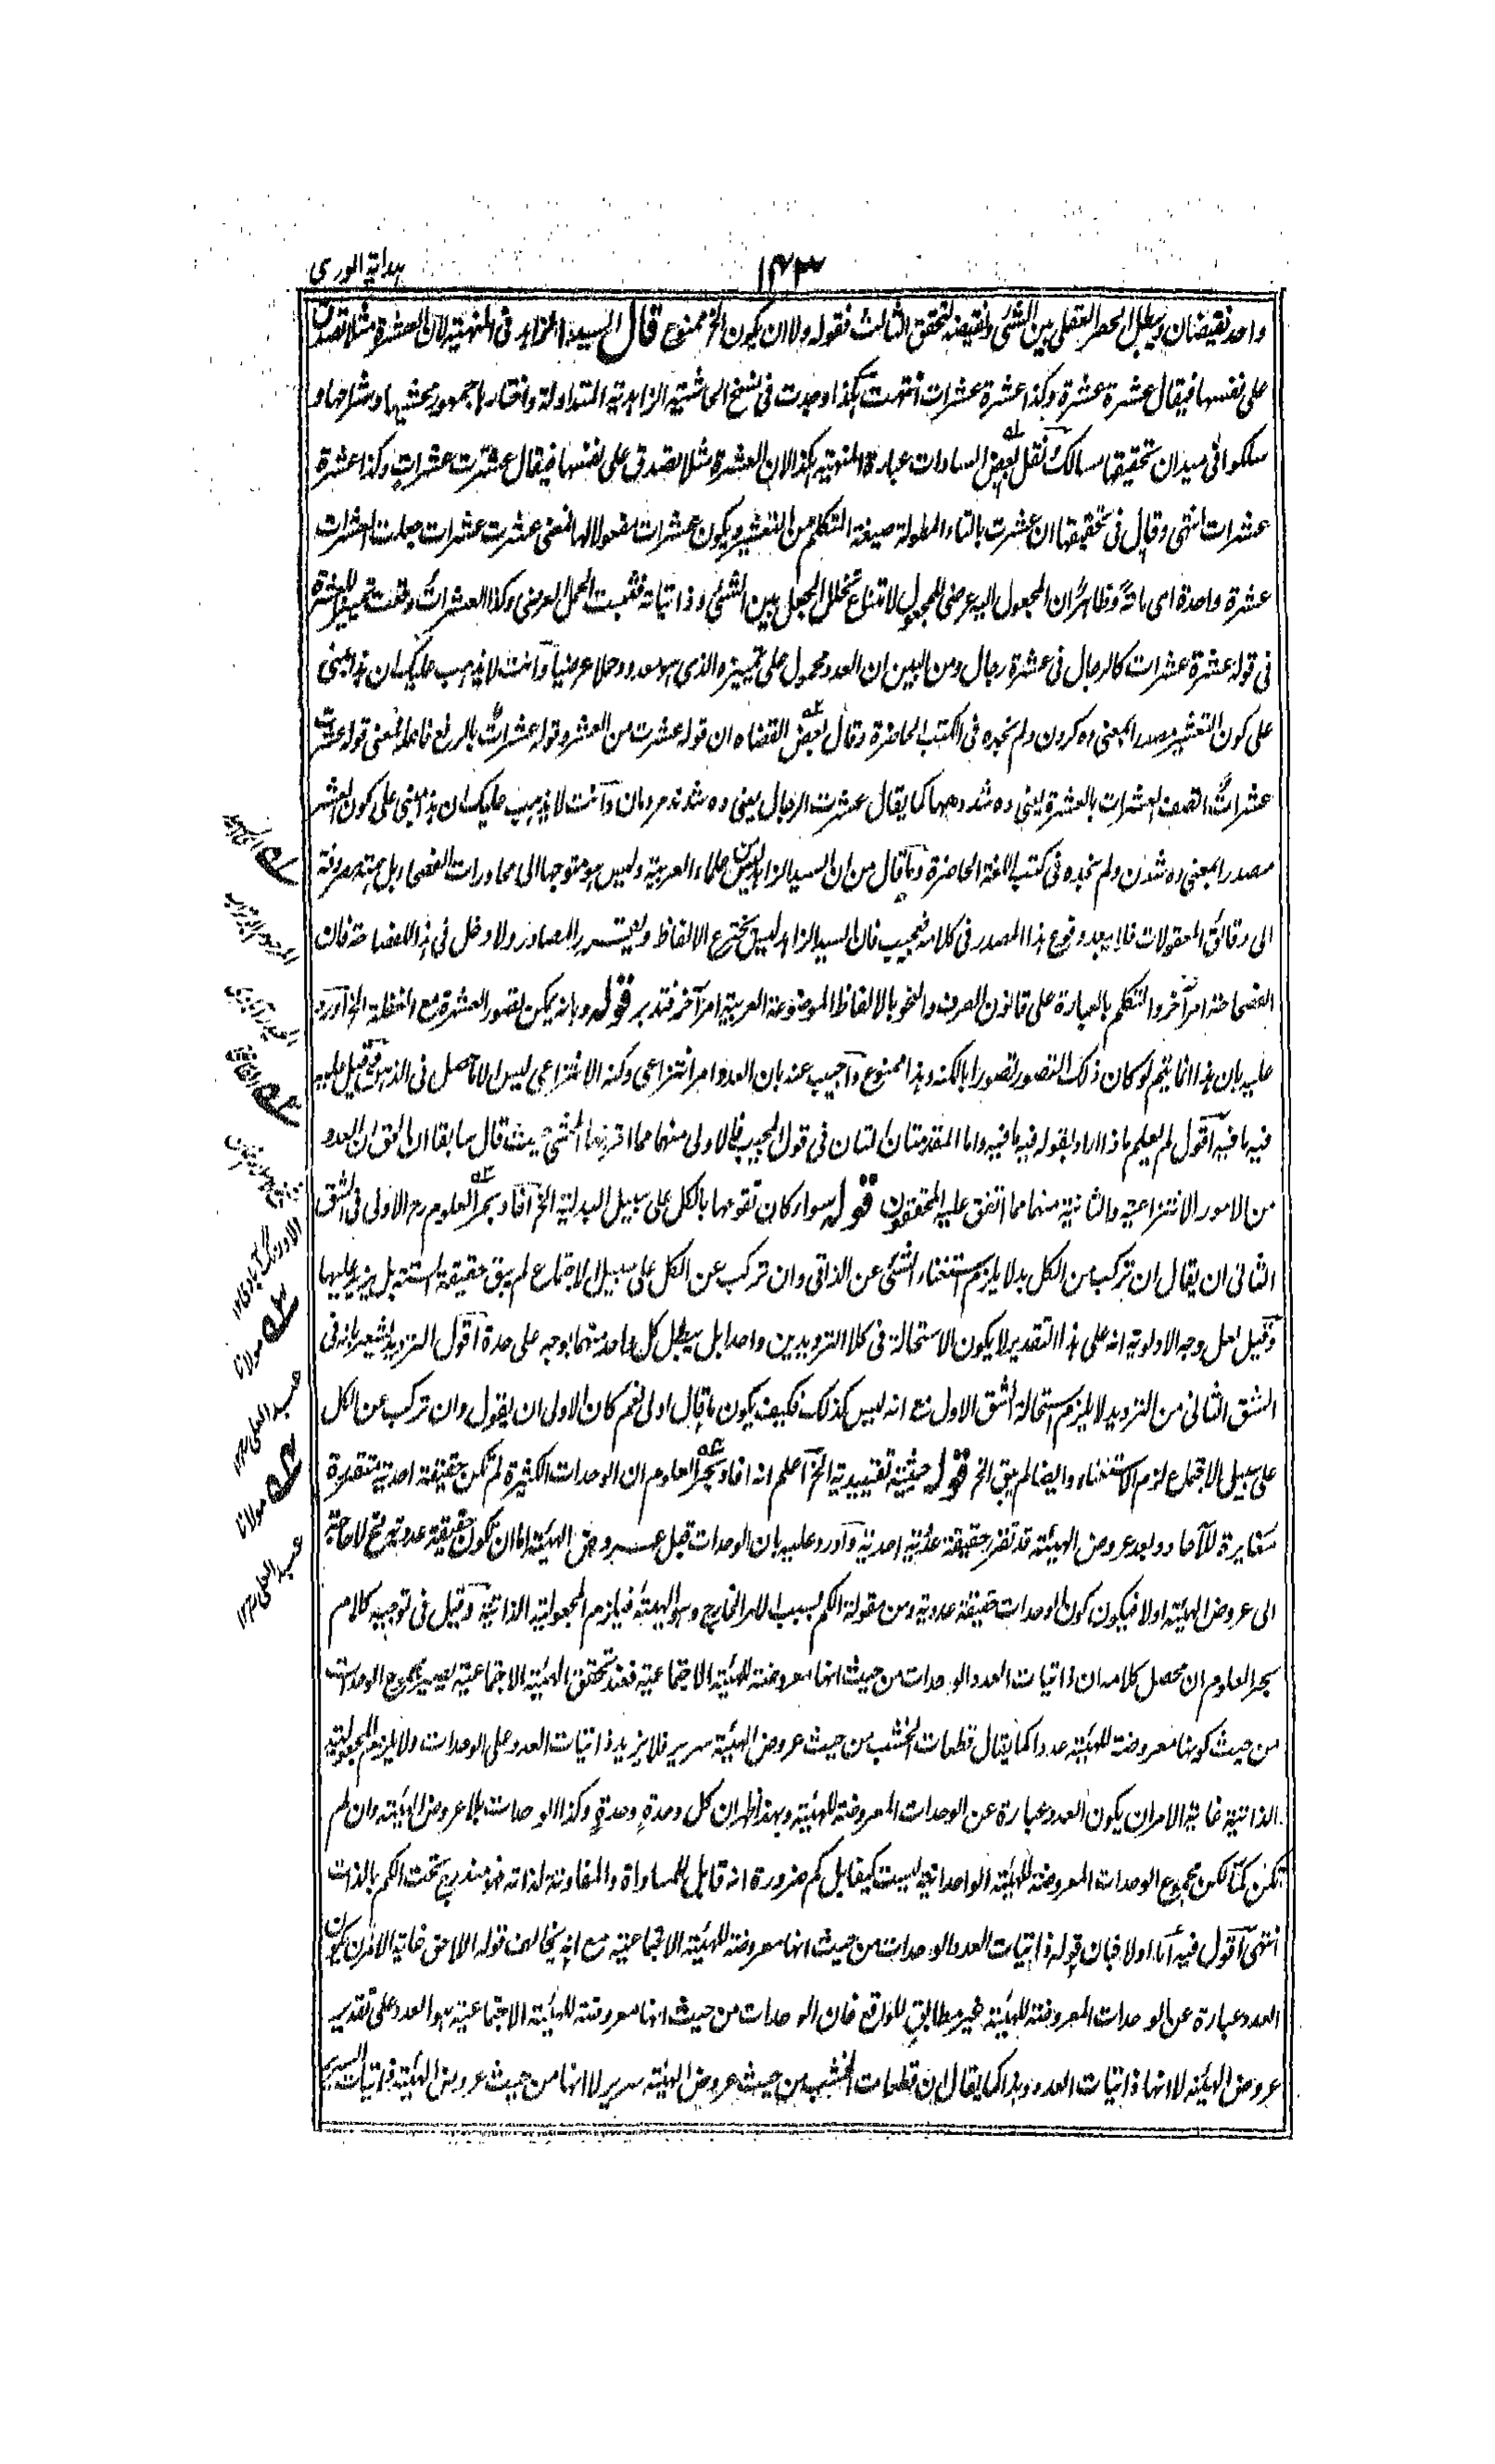 ١٤٣
هداية الورى
واحد نقيضان ويبطل الحصر العقلى بين الشئ ونقيضه لتحقق الثالث فقوله ولا ان يكون الخ ممنوع قال السيد الزاهد فى المنهية لان العشرة مثلا تصدق
على نفسها فيقال عشرة عشرة وكذا عشرة عشرات انتهت هكذا وجدت فى نسخ الحاشية الزاهدية المتداولة واختارها جمهور محشيها وشراحها و
سلكوا فى ميدان تحقيقها مسالك نقل بعض السادات عبارة المنهية هكذا لان العشرة مثلا يصدق على نفسها فيقال عشرت عشرات وكذا عشرة
عشرات انتهى وقال فى تحقيقها ان عشرت بالتاء المطولة صيغة التكلم من التعشير ويكون عشرات مفعولا لها فمعنى عشرت عشرات جعلت العشرات
عشرة واحدة اى مائة وظاهر ان المجعول اليه عرضى للمجعول لامتناع تخلل الجعل بين الشئ وذاتياته فثبت الحمل العرضى وكذا العشرات وقعت تمييز العشرة
فى قوله عشرة عشرات كالرجال فى عشرة رجال ومن البين ان العدد محمول على تمييزه الذى هو معدود حملا عرضيا وانت لا يذهب عليك ان هذا مبنى
على كون التعشير مصدرا بمعنى ده كردن ولم نجده فى الكتب الحاضرة وقال بعض القضاة ان قوله عشرت من العشر وقوله عشرات بالرفع فاعله فمعنى قوله عشرت
عشرات اتصف العشرات بالعشرة يعنى ده شد دهها كما يقال عشرت الرجال يعنى ده شدند مردمان وانت لا يذهب عليك ان هذا مبنى على كون العشر
مصدرا بمعنى ده شدن ولم نجده فى كتب اللغة الحاضرة وما قال من ان السيد الزاهد ليس من علماء العربية وليس هو متوجها الى محاورات الفصحاء بل همته مصروفة
الى دقائق المعقولات فلا يبعد وقوع هذا المصدر فى كلامه فعجيب فان السيد الزاهد ليس يخترع الالفاظ ويفتسر المصادر ولا دخل فى هذا للفصاحة فان
الفصاحة امر آخر والتكلم بالعبارة على قانون الصرف والنحو بالالفاظ الموضوعة العربية امر آخر فتدبر قوله وبانه يمكن تصور العشرة مع الغفلة الخ اورد
عليه بان هذا انما يتم لو كان ذلك التصور تصورا بالكنه وهذا ممنوع واجيب عنه بان العدد امر انتزاعى وكنه الانتزاعى ليس الا ما حصل فى الذهن وقيل عليه
فيه ما فيه اقول لم يعلم ماذا اراد بقوله فيه ما فيه واما المقدمتان اللتان فى قول المجيب فالاولى منهما مما اقر بها المحشى حيث قال سابقا ان الحق ان العدد
من الامور الانتزاعية والثانية منهما مما اتفق عليه المحققون قوله سواء كان تقومها بالكل على سبيل البدلية الخ افاد بحر العلوم رح الاولى فى الشق
الثانى ان يقال ان تركب من الكل بدلا يلزم استغناء الشئ عن الذاتى وان تركب عن الكل على سبيل الاجتماع لم يبق حقيقة الستة بل يزيد عليها
وقيل لعل وجه الاولوية انه على هذا التقدير لا يكون الاستحالة فى كلا الترديدين واحدا بل يبطل كل واحد منهما بوجه على حدة اقول الترديد اشعر بانه فى
الشق الثانى من الترديد لا يلزم استحالة الشق الاول مع انه ليس كذلك فكيف يكون ما قال اولى نعم كان الاولى ان يقول وان تركب عن الكل
على سبيل الاجتماع لزم الاستغناء وايضا لم يبق الخ قوله حيثية تقييدية الخ اعلم انه افاد بحر العلوم ان الوحدات الكثيرة لم تكن حقيقة احدية متقررة
مغايرة للآحاد وبعد عروض الهيئة قد تقرر حقيقة عددية احدية واورد عليه بان الوحدات قبل عروض الهيئة اما ان تكون حقيقة عددية فح لا حاجة
الى عروض الهيئة اولا فيكون كون الوحدات حقيقة عددية ومن مقولة الكم بسبب الامر الخارج وهو الهيئة فيلزم المجعولية الذاتية وقيل فى توجيه كلام
بحر العلوم ان محصل كلامه ان ذاتيات العدد الوحدات من حيث انها معروضة للهيئة الاجتماعية فعند تحقق الهيئة الاجتماعية يصير مجموع الوحدات
من حيث كونها معروضة للهيئة عددا كما يقال قطعات الخشب من حيث عروض الهيئة سرير فلا يزيد ذاتيات العدد على الوحدات ولا يلزم المجعولية
الذاتية غاية الامر ان يكون العدد عبارة عن الوحدات المعروضة للهيئة وبهذا ظهر ان كل وحدة وحدة وكذا الوحدات بلا عروض الهيئة وان لم
تكن كما لكن مجموع الوحدات المعروضة للهيئة الواحدانية ليست كيفا بل كم ضرورة انه قابل للمساواة والمفاوتة لذاته فهو مندرج تحت الكم بالذات
انتهى اقول فيه اما اولا فبان قوله ذاتيات العدد الوحدات من حيث انها معروضة للهيئة الاجتماعية مع انه يخالف قوله الاحق غاية الامر ان يكون
العدد عبارة عن الوحدات المعروضة للهيئة غير مطابق للواقع فان الوحدات من حيث انها معروضة للهيئة الاجتماعية هو العدد على تقدير
عروض الهيئة لا انها ذاتيات العدد وهذا كما يقال ان قطعات الخشب من حيث عروض الهيئة سرير لا انها من حيث عروض الهيئة ذاتيات السرير
مولانا
عبد العلى ١٢
مولانا
عبد العلى ١٢